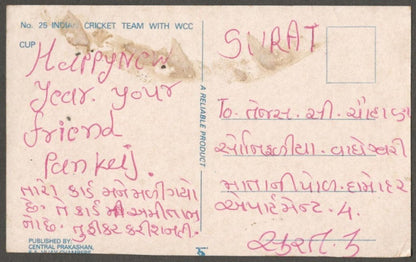 No. 25 INDIAN CRICKET TEAM WITH WCC
CUP
Happy New
Year. your
friend
Pankaj.
તારો કાર્ડ મને મળી ગયો
છે. તે કાર્ડ
નો છે.
PUBLISHED BY:
CENTRAL PRAKASHAN,
A RELIABLE PRODUCT
SURAT
To. તેજસ. સી.
વાઘેશ્વરી
માતાની પોળ. દામોદર
એપાર્ટમેન્ટ. 4.
સુરત. ૩